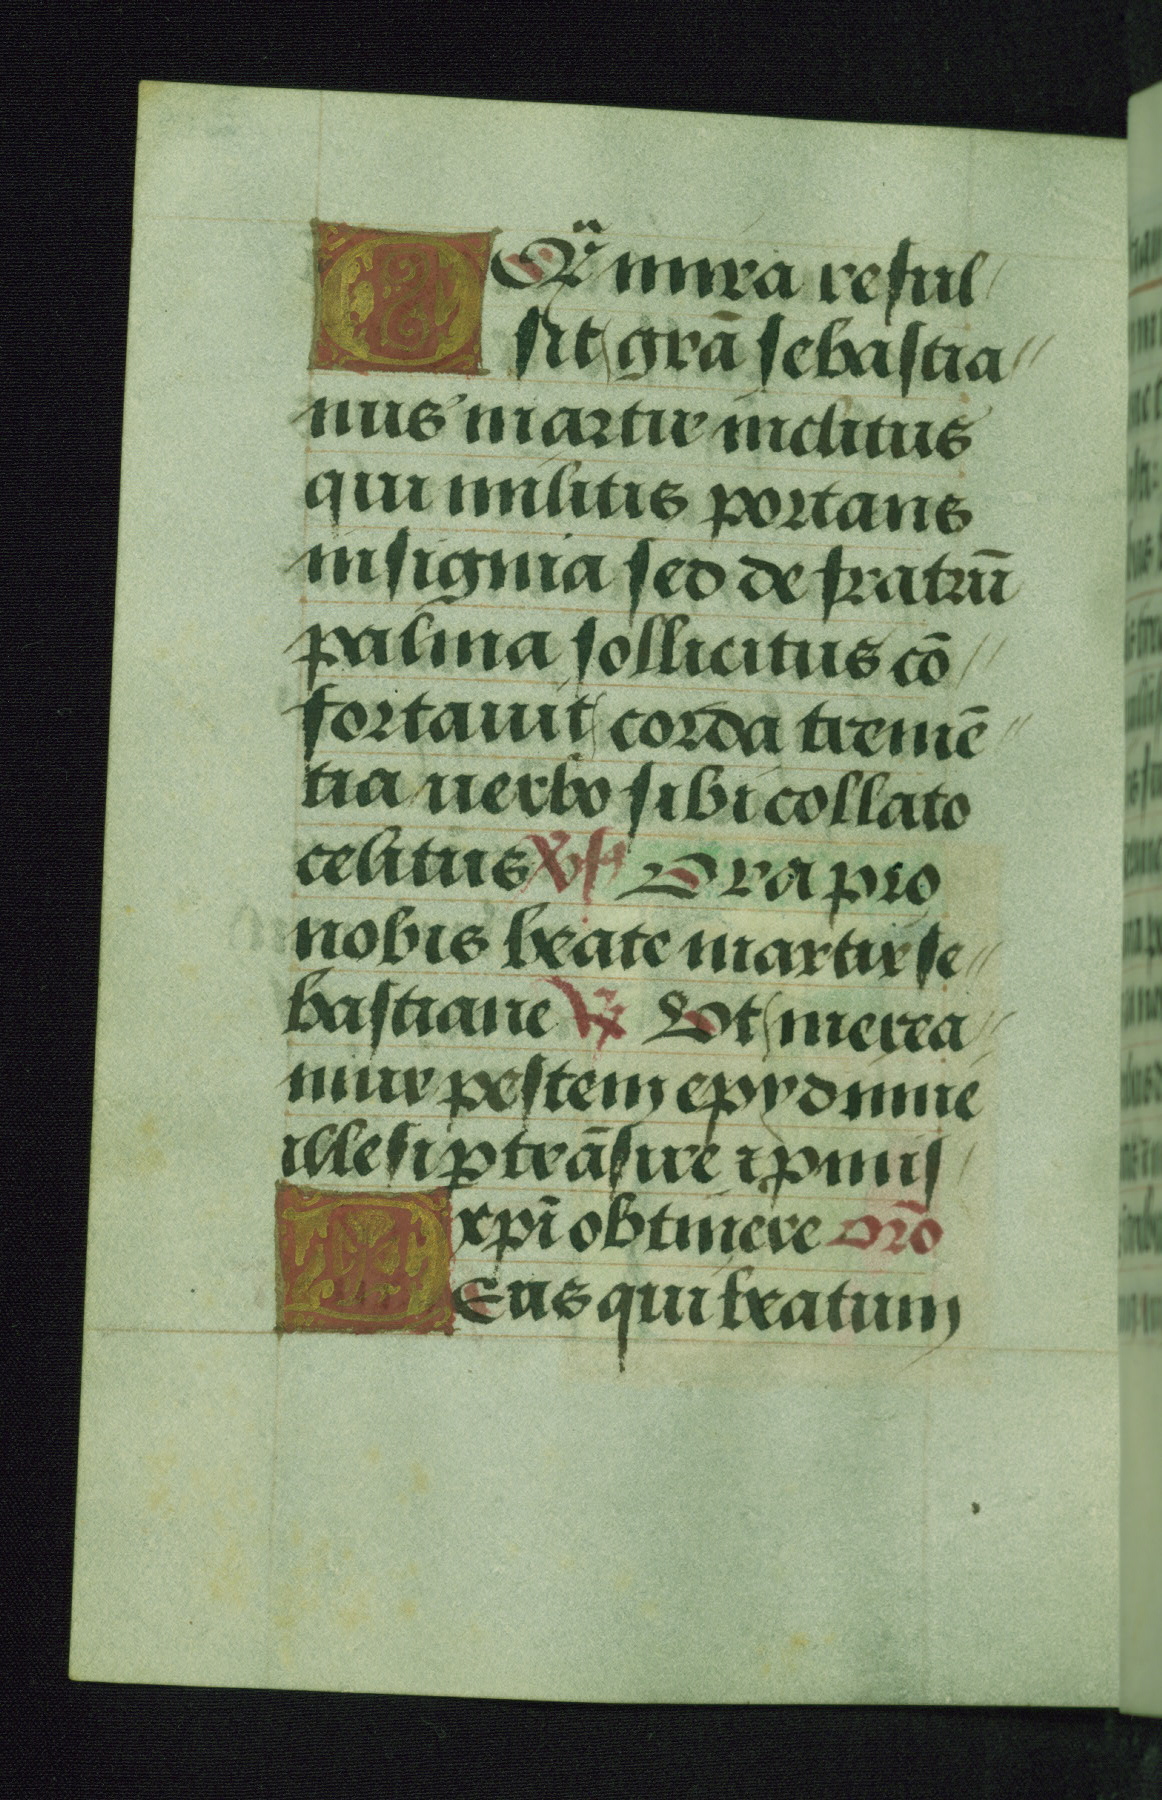 OQm̄ mira reful
sit grā sebastia
nus martir inclitus
qui militis portans
insignia sed de fratrū
palma sollicitus cō
fortauit corda tremē
tia uerbo sibi collato
celitus v̷s Ora pro
nobis beate martir se
bastiane R̷ Vt merea
mur pestem epydimie
illesi ptrāsire ⁊ pmis
xpī obtinere Orō
DEus qui beatum